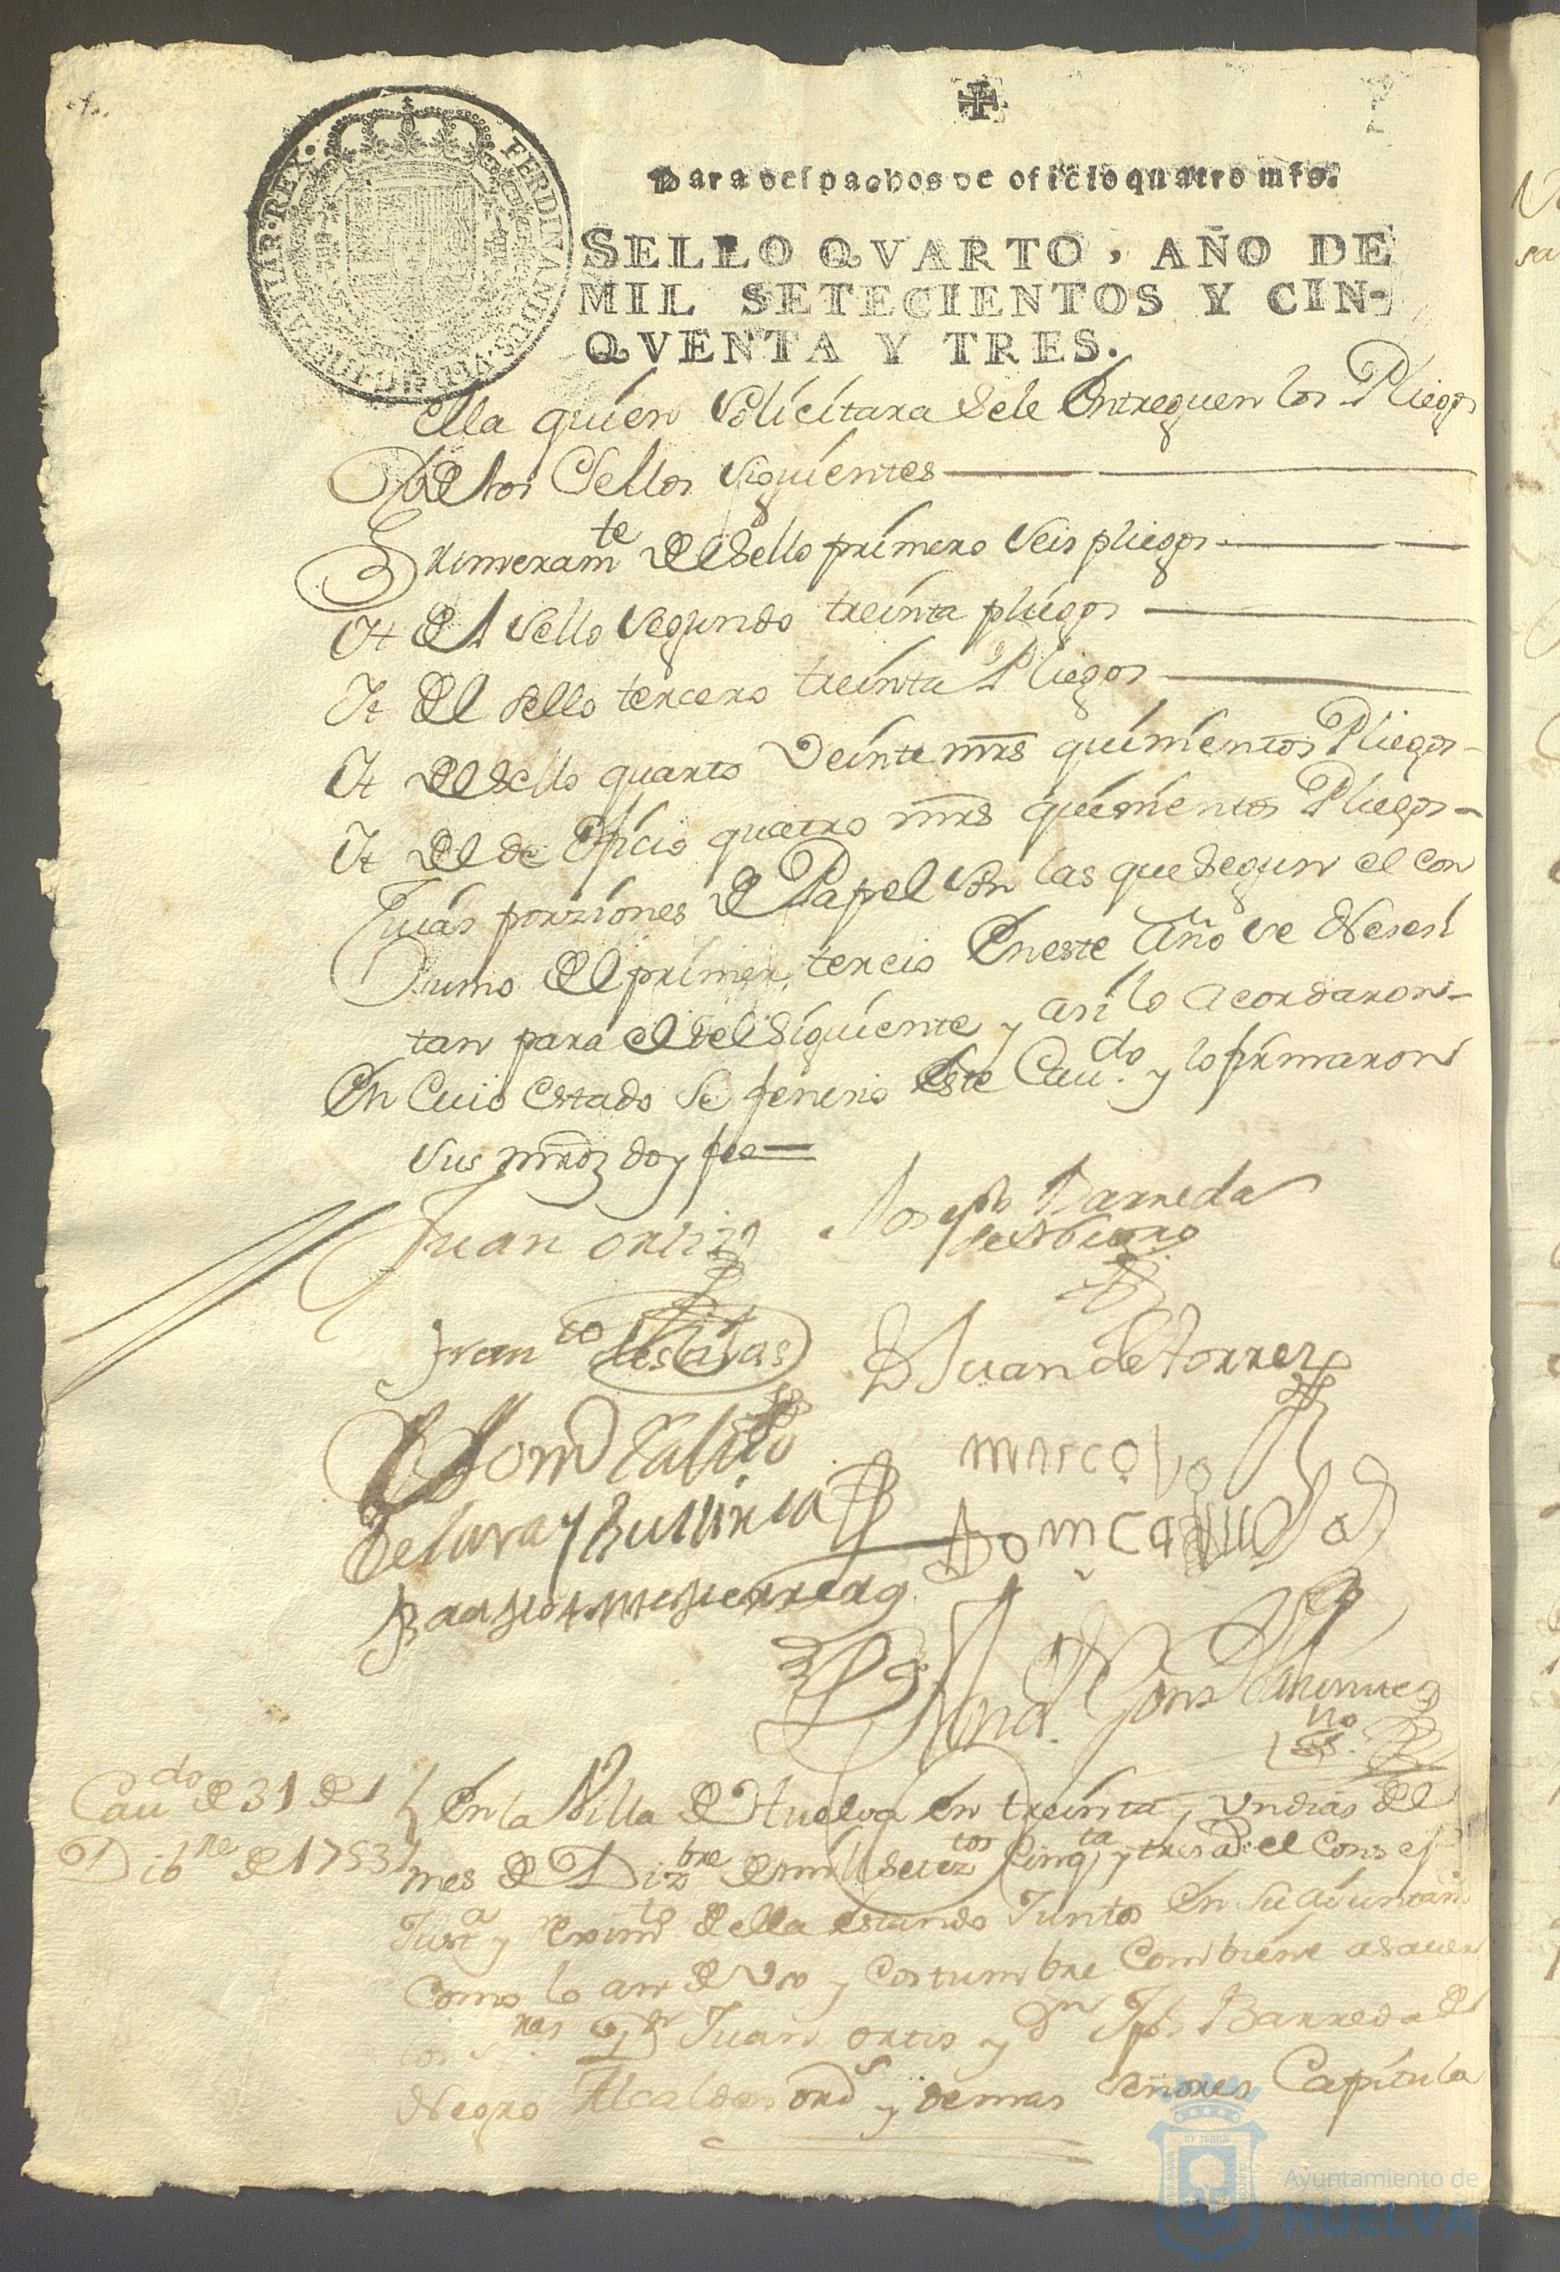 Para despachos de oficio quatro mrs.
SELLO QVARTO, AÑO DE
MIL SETECIENTOS Y CIN-
QVENTA Y TRES.
FERDINANDUS VI D G HISPANIAR REX
ella quien solicitara sele entreguen los Pliegos
de los sellos siguientes
Primeramte del sello primero seis pliegos
It del sello segundo treinta pliegos
It del sello tercero treinta Pliegos
It del sello quarto veinte mrs quinientos Pliegos
It del de oficio quatro mrs quinientos Pliegos
Cuias porziones de Papel son las que segun el con
sumo del primer tercio en este Año se Nesesi
tan para el del siguiente y asi lo acordaron
En Cuio estado se fenecio este Cavdo. y lo firmaron
sus mrdz doy fee
Juan ortiz
Joseph Barreda
de Negro
Franco de salas
D Juan de torres
de lara y
marcos
Dom
Cavdo de 31 de
Dibre de 1753
En la Villa de Huelva en treinta y un dias del
mes de Dizbre de mill seteztos cinqta y tres as el Consejo
Justa y reximto della estando Juntos en su ayuntam
Como lo an de uso y costumbre combiene a saver
los Sres Dn Juan ortis y Dn Jph Barreda de
Negro Alcaldes ords y demas señores Capitula
Ayuntamiento de
HUELVA